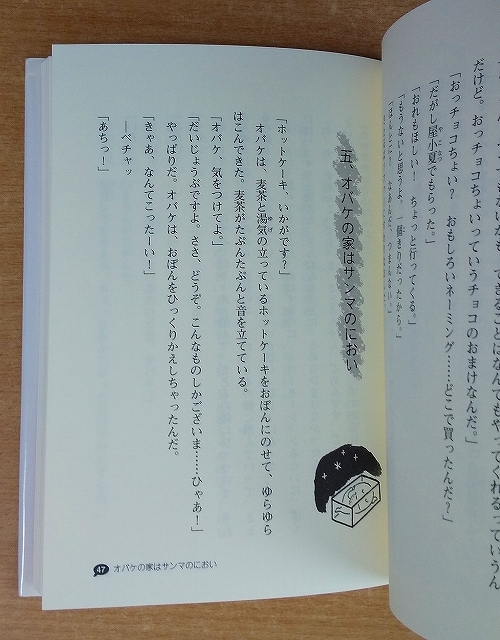 だけど。おっチョコちょいっていうチョコのおまけなんだ。」
「おっチョコちょい？　おもしろいネーミング……どこで買ったんだ？」
「だがし屋小夏でもらった。」
「おれもほしい！　ちょっと行ってくる。」
「もうないと思うよ、一個きりだったから。」
「ほんとに？　なあんだ、つまんない。」
五、オバケの家はサンマのにおい
「ホットケーキ、いかがです？」
オバケは、麦茶と湯気の立っているホットケーキをおぼんにのせて、ゆらゆら
はこんできた。麦茶がたぷんたぷんと音を立てている。
「オバケ、気をつけてよ。」
「だいじょうぶですよ。ささ、どうぞ。こんなものしかございま……ひゃあ！」
やっぱりだ。オバケは、おぼんをひっくりかえしちゃったんだ。
「きゃあ、なんてこったーい！」
―ベチャッ
「あちっ！」
47 オバケの家はサンマのにおい